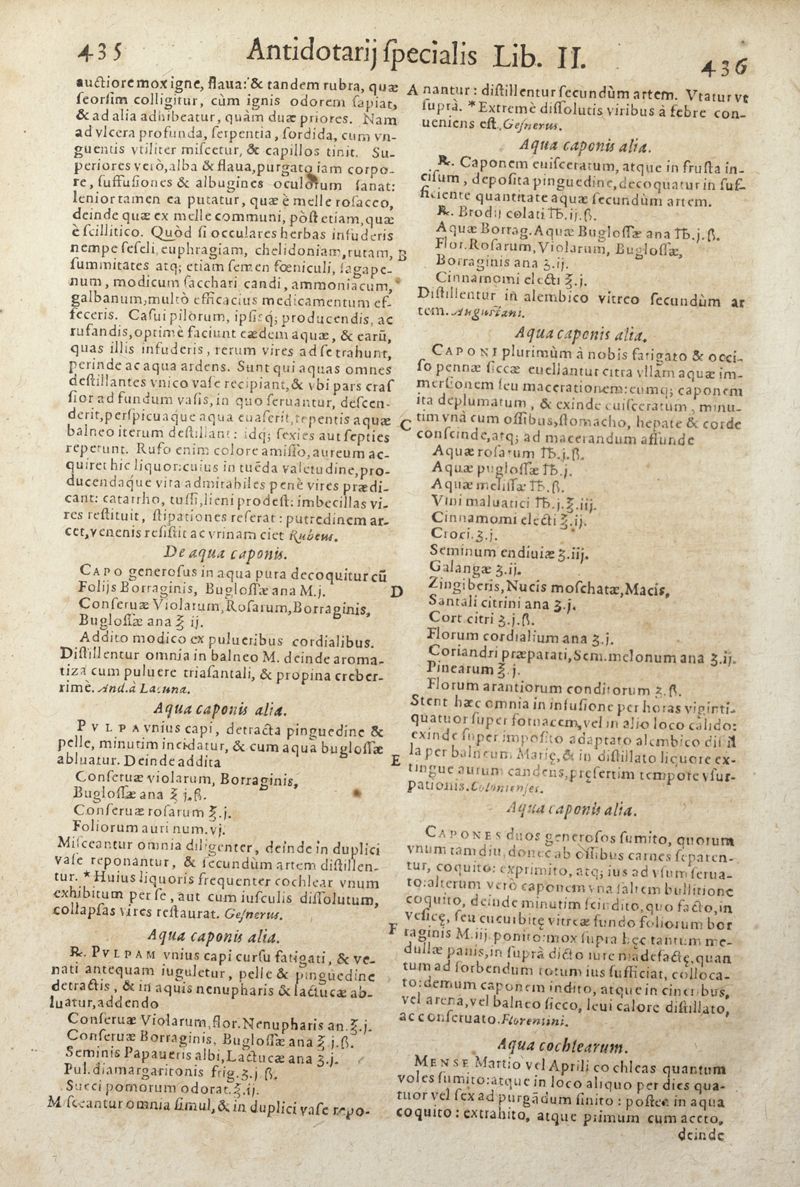 435 Antidotarij ſpecialis Lib. II. 436
auctiore mox igne, flaua: & tandem rubra, quæ
ſeorſim colligitur, cùm ignis odorem ſapiat,
& ad alia adhibeatur, quàm duæ priores. Nam
ad vlcera profunda, ſerpentia, ſordida, cum vn-
guentis vtiliter miſcetur, & capillos tinit. Su-
periores verò, alba & flaua, purgato iam corpo-
re, ſuffuſiones & albugines oculorum ſanat:
lenior tamen ea putatur, quæ è melle roſacco,
deinde quæ ex melle communi, pòſt etiam, quæ
è ſcillitico. Quòd ſi occulares herbas infuderis
nempe ſeſeli, euphragiam, chelidoniam, rutam, B
ſummitates atq; etiam ſemen fœniculi, ſagape-
num, modicum ſacchari candi, ammoniacum,
galbanum, multò efficacius medicamentum ef-
feceris. Caſui pilorum, ipſiſq; producendis, ac
rufandis, optimè faciunt cædem aquæ, & earū,
quas illis infuderis, rerum vires ad ſe trahunt,
perinde ac aqua ardens. Sunt qui aquas omnes
deſtillantes vnico vaſe recipiant, & vbi pars craſ
ſior ad fundum vaſis, in quo ſeruantur, deſcen-
derit, perſpicuaque aqua euaſerit, repentis aquæ
balneo iterum deſtillant: idq; ſexies aut ſepties
repetunt. Rufo enim colore amiſſo, aureum ac-
quiret hic liquor: cuius in tuēda valetudine, pro-
ducendaque vita admirabiles penè vires prædi-
cant: catarrho, tuſſi, lieni prodeſt: imbecillas vi-
res reſtituit, ſtipationes reſerat: putredinem ar-
cet, venenis reſiſtit ac vrinam ciet Rubeus.
De aqua caponis.
CAPO generoſus in aqua pura decoquitur cū
Folijs Borraginis, Bugloſſæ ana M.j.
Conſeruæ Violarum, Roſarum, Borraginis,
Bugloſſæ ana ℥ ij.
Addito modico ex pulueribus cordialibus.
Diſtillentur omnia in balneo M. deinde aroma-
tiza cum puluere triaſantali, & propina creber-
rimè. And. à Lacuna.
Aqua caponis alia.
PVLPA vnius capi, detracta pinguedine &
pelle, minutim incidatur, & cum aqua bugloſſæ
abluatur. Deinde addita
Conſeruæ violarum, Borraginis,
Bugloſſæ ana ℥ j.ß.
Conſeruæ roſarum ℥.j.
Foliorum auri num. vj.
Miſceantur omnia diligenter, deinde in duplici
vaſe reponantur, & ſecundùm artem diſtillen-
tur. * Huius liquoris frequenter cochlear vnum
exhibitum per ſe, aut cum iuſculis diſſolutum,
collapſas vires reſtaurat. Geſnerus.
Aqua caponis alia.
℞. PVLPAM vnius capi curſu fatigati, & ve-
nati antequam iuguletur, pelle & pinguedine
detractis, & in aquis nenupharis & lactucæ ab-
luatur, addendo
Conſeruæ Violarum, flor. Nenupharis an. ℥.j.
Conſeruæ Borraginis, Bugloſſæ ana ℥ j.ß.
Seminis Papaueris albi, Lactucæ ana ʒ.j.
Pul. diamargaritonis frig. ʒ.j ß.
Succi pomorum odorat. ℥.ij.
Miſceantur omnia ſimul, & in duplici vaſe repo-
A nantur: diſtillentur ſecundùm artem. Vtatur vt
ſuprà. * Extremè diſſolutis viribus à febre con-
ueniens eſt, Geſnerus.
Aqua caponis alia.
℞. Caponem euiſceratum, atque in fruſta in-
ciſum, depoſita pinguedine, decoquatur in ſuf-
ficiente quantitate aquæ ſecundùm artem.
℞. Brodij colati ℔.ij.ß.
Aquæ Borrag. Aquæ Bugloſſæ ana ℔.j.ß.
Flor. Roſarum, Violarum, Bugloſſæ,
Borraginis ana ʒ.ij.
Cinnamomi electi ℥.j.
Diſtillentur in alembico vitreo ſecundùm ar
tem. Auguſtani.
Aqua caponis alia.
CAPONI plurimùm à nobis fatigato & occi-
ſo pennæ ſiccæ euellantur citra vllam aquæ im-
merſionem ſeu macerationem: eumq; caponem
ita deplumatum, & exinde euiſceratum, minu-
C tim vnà cum oſſibus, ſtomacho, hepate & corde
confcinde, atq; ad macerandum affunde
Aquæ roſarum ℔.j.ß.
Aquæ bugloſſæ ℔.j.
Aquæ meliſſæ ℔.ß.
Vini maluatici ℔.j.℥.iij.
Cinnamomi electi ℥.ij.
Croci.ʒ.j.
Seminum endiuiæ ʒ.iij.
Galangæ ʒ.ij.
D Zingiberis, Nucis moſchatæ, Macis,
Santali citrini ana ʒ.j.
Cort. citri ʒ.j.ß.
Florum cordialium ana ʒ.j.
Coriandri præparati, Sem. melonum ana ʒ.ij.
Pinearum ℥ j.
Florum arantiorum conditorum ʒ.ß.
Stent hæc omnia in infuſione per horas viginti-
quatuor ſuper fornacem, vel in alio loco calido:
exinde ſuper impoſito adaptato alembico diſtil
E la per balneum Marię, & in diſtillato liquore ex-
tingue aurum candens, pręſertim tempore vſur-
pationis. Colonienſes.
Aqua caponis alia.
CAPONES duos generoſos ſumito, quorum
vnum tamdiu, donec ab oſſibus carnes ſeparen-
tur, coquito: exprimito, atq; ius ad vſum ſerua-
to: alterum verò caponem vna ſaltem bullitione
coquito, deinde minutim ſcindito, quo facto, in
veſicę, ſeu cucurbitę vitreæ fundo foliorum bor
F raginis M. iij ponito: mox ſupra hęc tantum me-
dullæ panis, in ſuprà dicto iure madefactę, quan
tum ad ſorbendum totum ius ſufficiat, colloca-
to: demum caponem indito, atque in cineribus,
vel arena, vel balneo ſicco, leui calore diſtillato,
ac conſeruato. Florentini.
Aqua cochlearum.
MENSE Martio vel Aprili cochleas quantum
voles ſumito: atque in loco aliquo per dies qua-
tuor vel ſex ad purgādum ſinito: poſtea in aqua
coquito: extrahito, atque primum cum aceto,
deinde